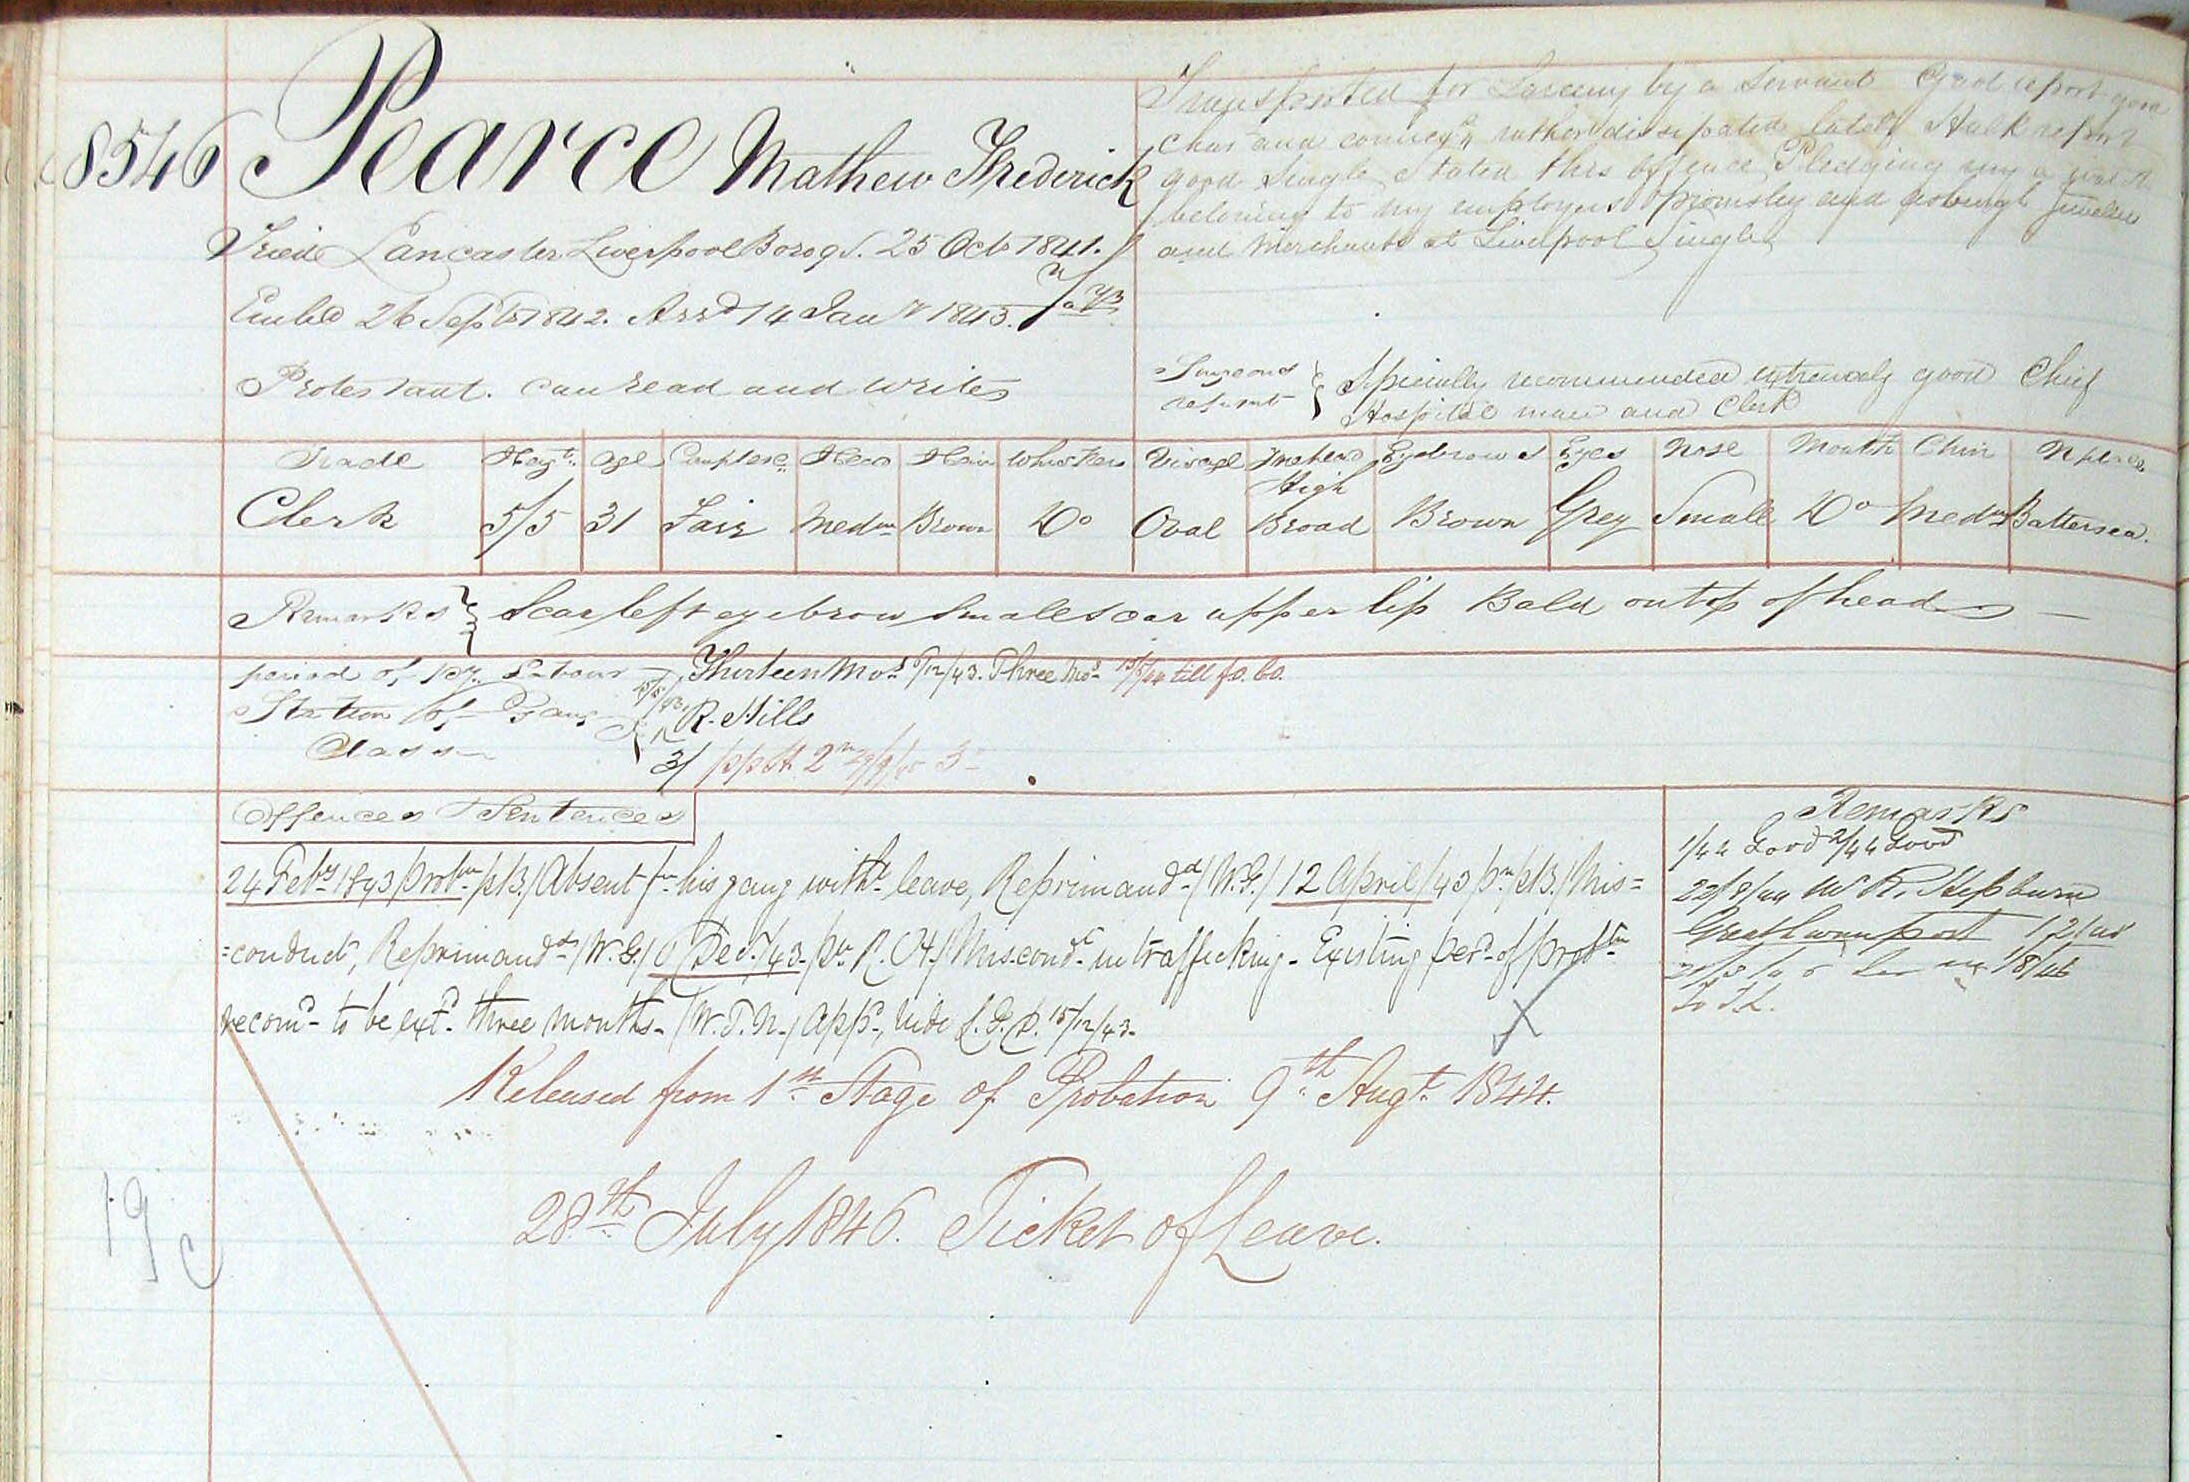 8546 Pearce Mathew Frederick
Tried Lancaster Liverpool Boro Q.S. 25 Octr 1841.
7 Ys
Embd 26 Septbr 1842. Arrd 14 Jany 1843.
Protestant. Can read and write
Transported for Larceny by a Servant Gaol report good
Char and connexns rather dissipated lately Hulk report
good Single Stated this Offence Pledging
belonging to my employers Promsley and Jewellers
and Merchants at Liverpool Single
Surgeons report } Specially recommended extremely good Chief
Hospital man and Clerk
Trade Heigt. Age Complexn. Head Hair Whiskers Visage Forehead Eyebrows Eyes Nose Mouth Chin N place
Clerk 5/5 31 Fair Medm Brown Do Oval High Broad Brown Grey Small Do Medm Battersea.
Remarks } Scar left eyebrow Small scar upper lip Bald on top of head
period of Labour Thirteen Mos 6/12/43. Three Mos 15/ till
Station of Gang R. Hills
Class 3/ 2nd
Offences & Sentences
24 Feby 1843/Probn p13/Absent fm his gang witht leave, Reprimandd/W.G./12 April/43 pn p13./Mis=
=conduct, Reprimandd/W.G/6 Decr/43. pn R. H/Miscondt in trafficking - Existing perd of probtn
recomd to be extd three months - /W.T.N./Appd, Vide 15/12/43-
Released from 1st Stage of Probation 9th Augt 1844.
28th July 1846. Ticket of Leave.
Remarks
1/44 Good 2/44 Good
22/8/44 Mr R. Hepburn
Great Swanport
18/46
To T.L.
19
C